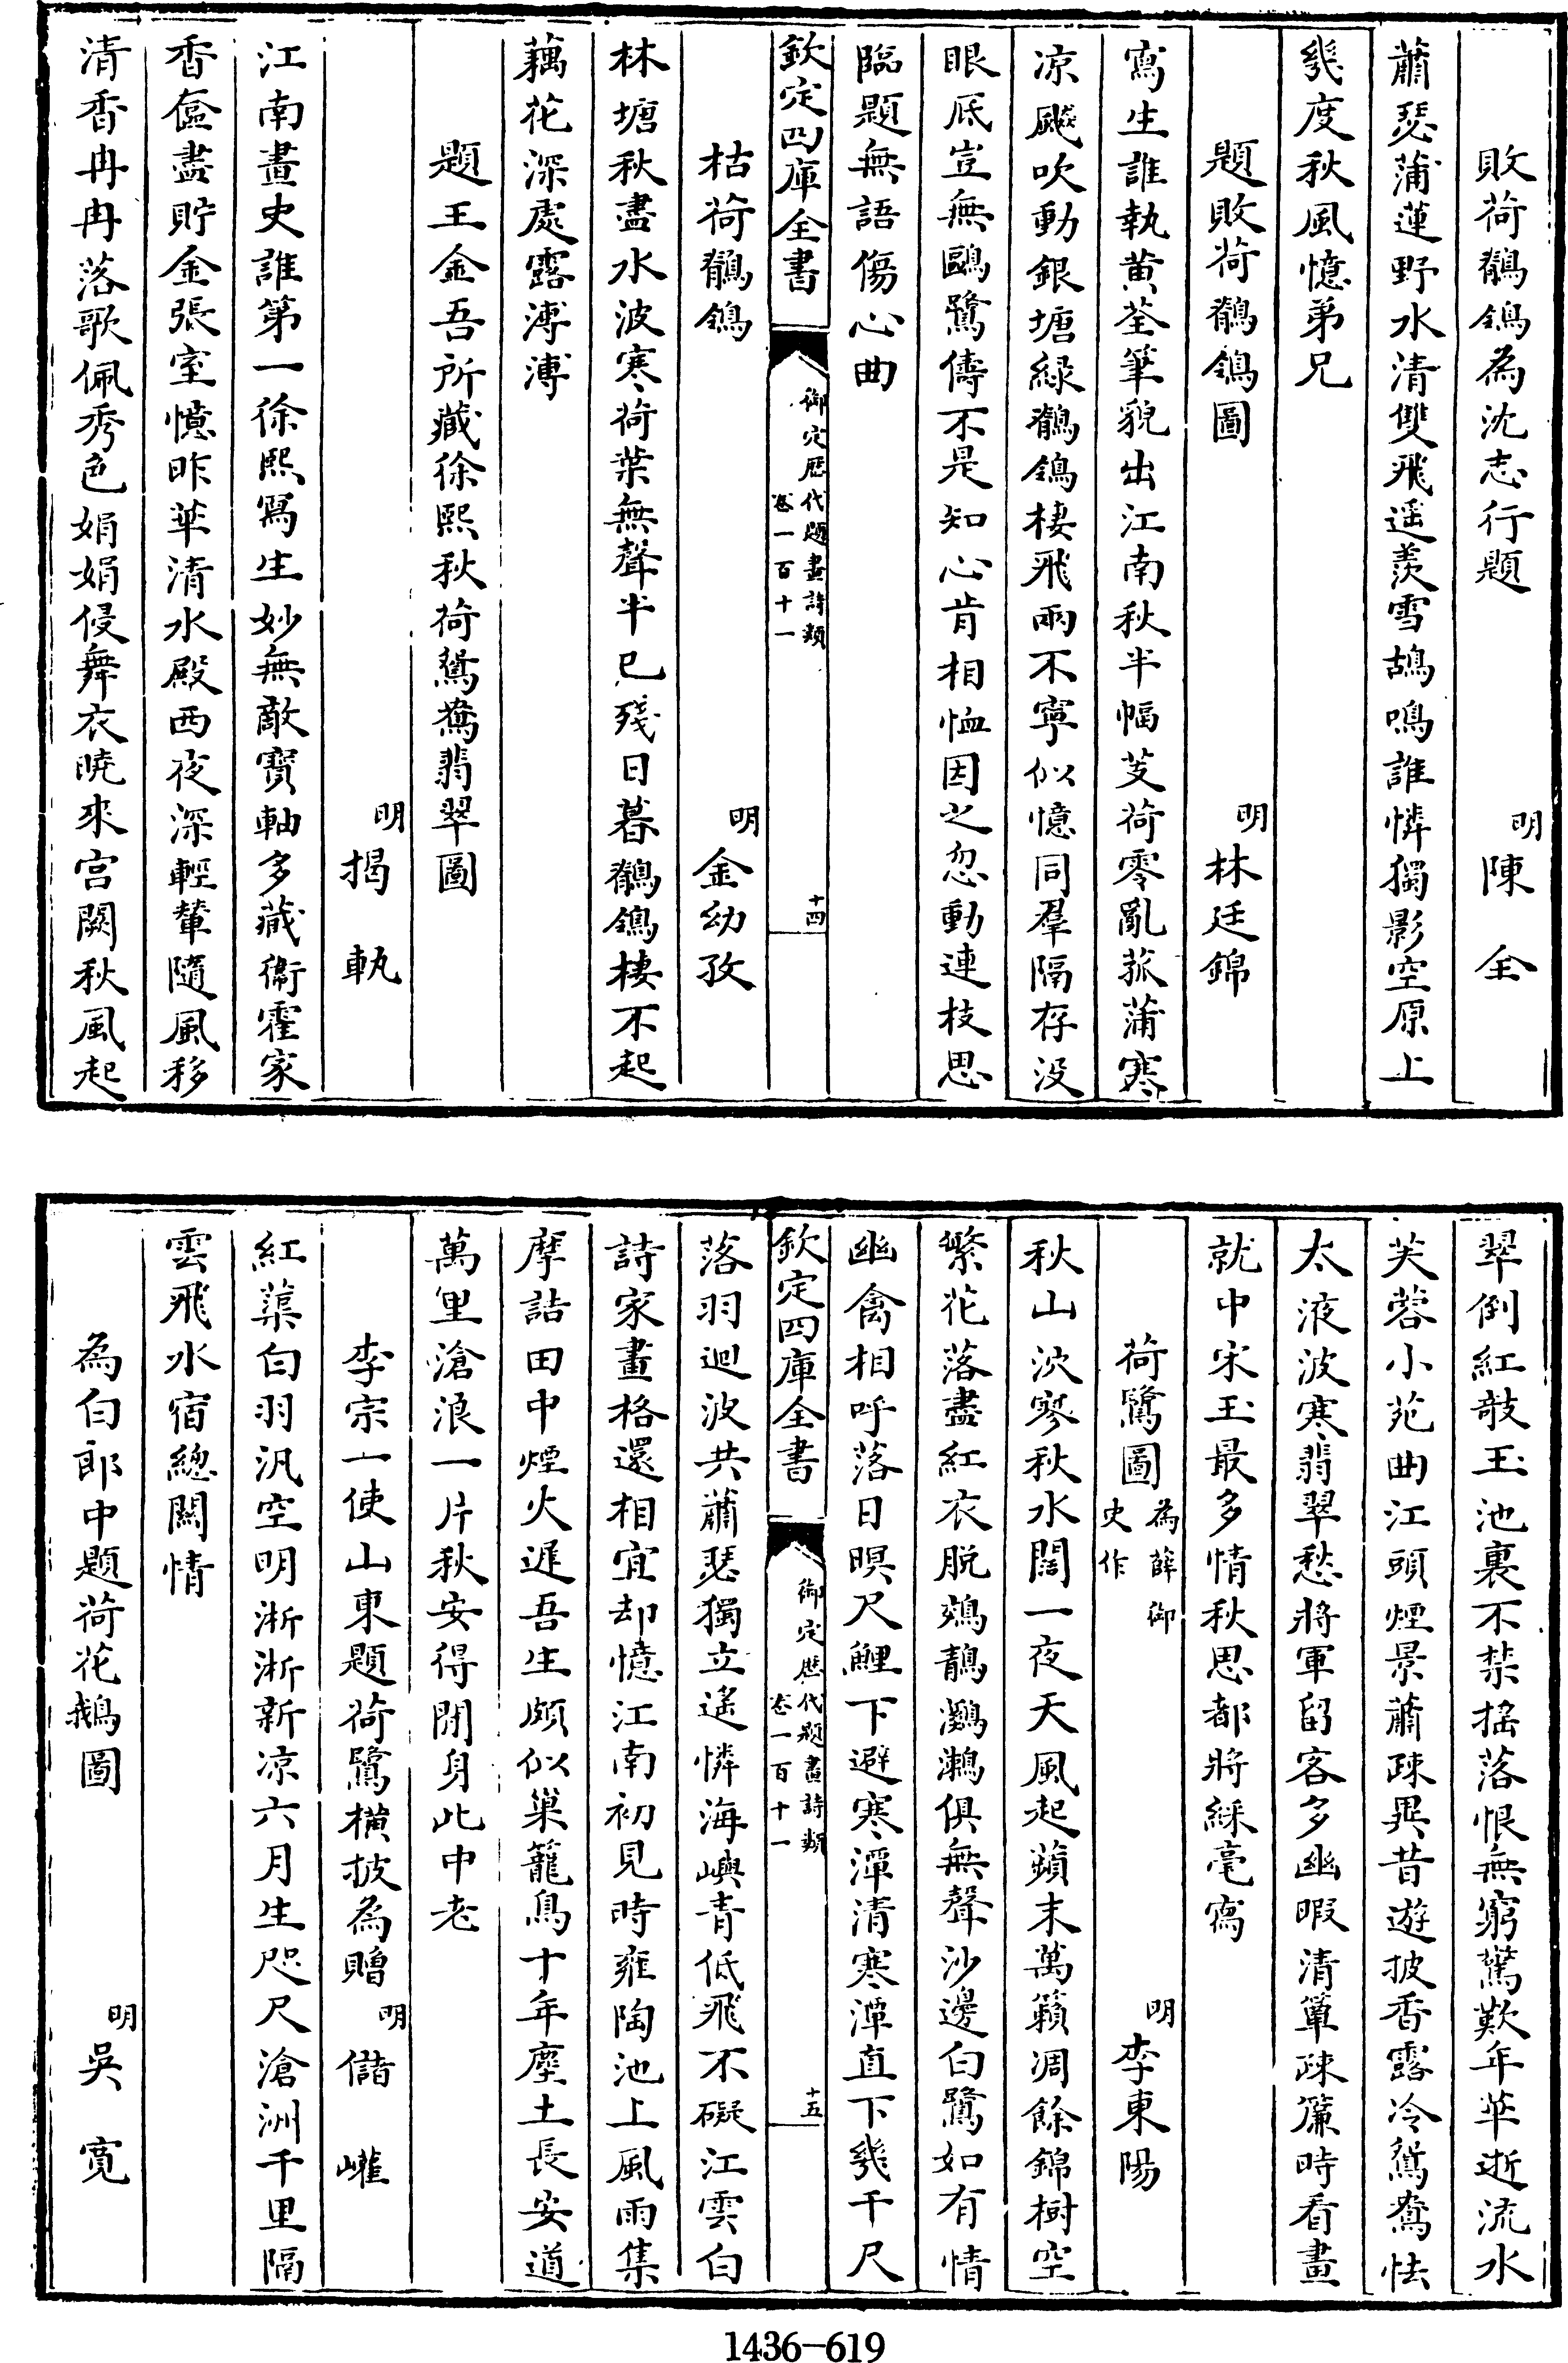 敗荷鶺鴒為沈志行題　明陳全
蕭瑟蒲蓮野水清雙飛遥羨雪鴣鳴誰憐獨影空原上
幾度秋風憶弟兄
題敗荷鶺鴒圖　明林廷錦
寫生誰執黄荃筆貌出江南秋半幅芰荷零亂菰蒲寒
凉飈吹動銀塘緑鶺鴒棲飛兩不寧似憶同羣隔存没
眼底豈無鷗鷺儔不是知心肯相恤因之忽動連枝思
臨題無語傷心曲
欽定四庫全書　御定歴代題畫詩類卷一百十一　十四
枯荷鶺鴒　明金幼孜
林塘秋盡水波寒荷葉無聲半已殘日暮鶺鴒棲不起
藕花深處露漙漙
題王金吾所藏徐熙秋荷鴛鴦翡翠圖
明揭軌
江南畫史誰第一徐熙寫生妙無敵寳軸多藏衞霍家
香奩盡貯金張室憶昨華清水殿西夜深輕輦隨風移
清香冉冉落歌佩秀色娟娟侵舞衣曉來宫闕秋風起
翠倒紅敧玉池裏不禁揺落恨無窮驚歎年華逝流水
芙蓉小苑曲江頭煙景蕭疎異昔遊披香露冷鴛鴦怯
太液波寒翡翠愁將軍留客多幽暇清簟疎簾時看畫
就中宋玉最多情秋思都將綵毫寫
荷鷺圖為薛御史作　明李東陽
秋山泬寥秋水闊一夜天風起蘋末萬籟凋餘錦樹空
繁花落盡紅衣脱鵁鶄鸂鶒俱無聲沙邊白鷺如有情
幽禽相呼落日暝尺鯉下避寒潭清寒潭直下幾千尺
欽定四庫全書　御定歴代題畫詩類卷一百十一　十五
落羽迴波共蕭瑟獨立遙憐海嶼青低飛不礙江雲白
詩家畫格還相宜却憶江南初見時雍陶池上風雨集
摩詰田中煙火遲吾生頗似巢籠鳥十年塵土長安道
萬里滄浪一片秋安得閒身此中老
李宗一使山東題荷鷺横披為贈　明儲巏
紅蕖白羽汎空明淅淅新凉六月生咫尺滄洲千里隔
雲飛水宿總關情
為白郎中題荷花鵝圖　明吳寛
1436-619